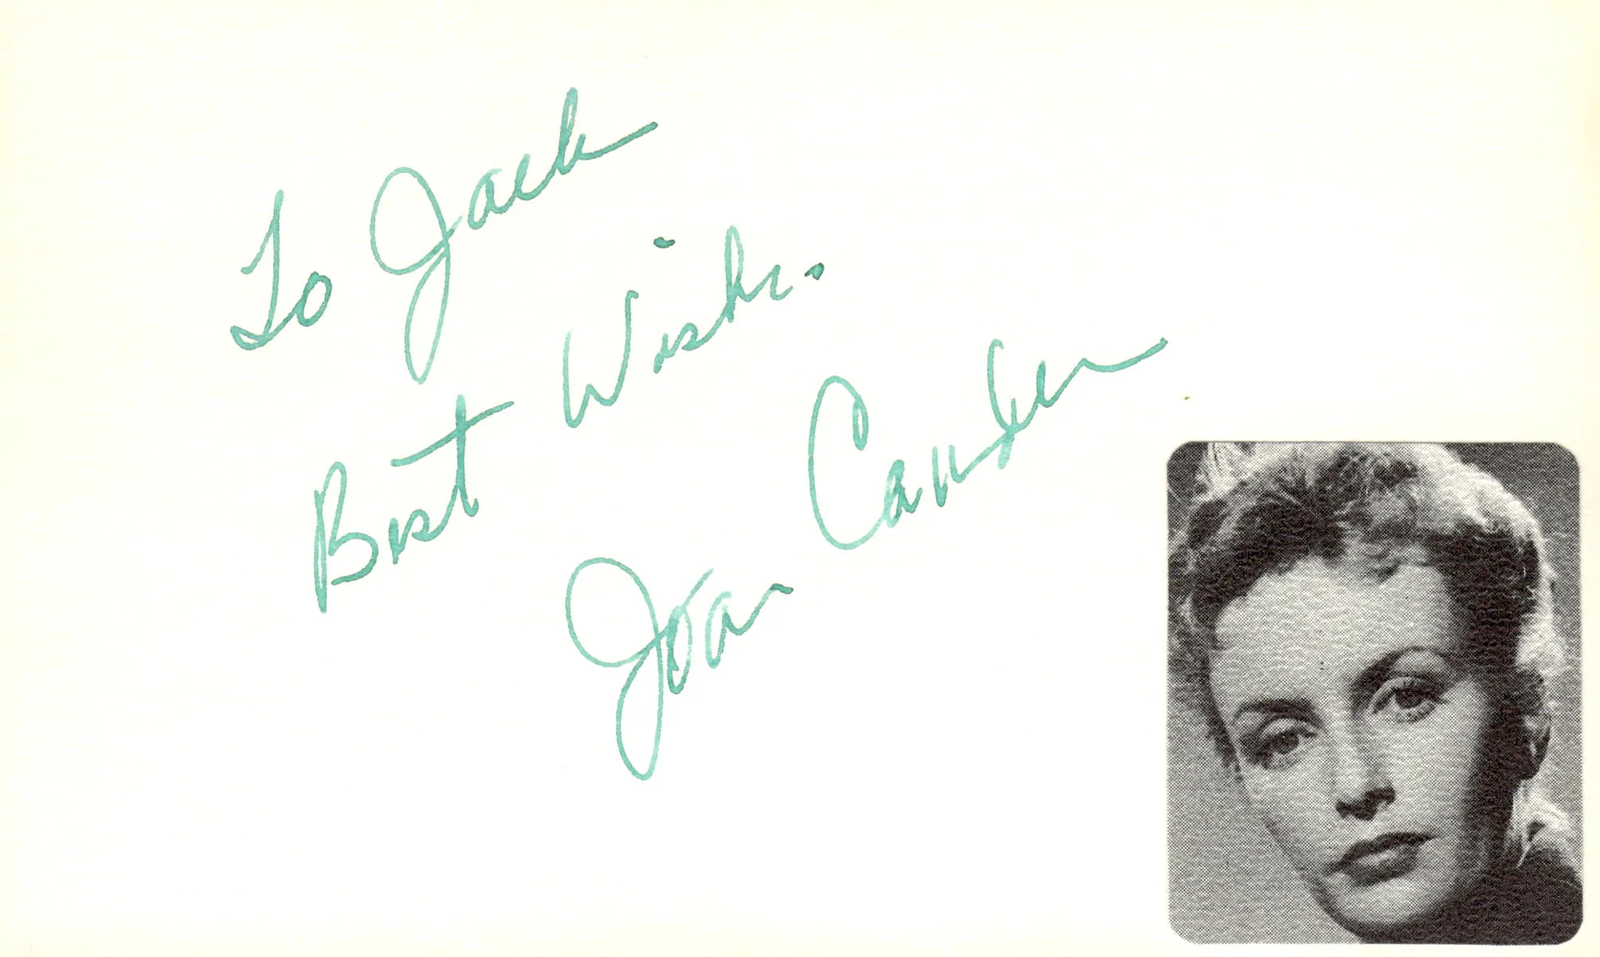 To Jack
Best Wishes
Joan Camden